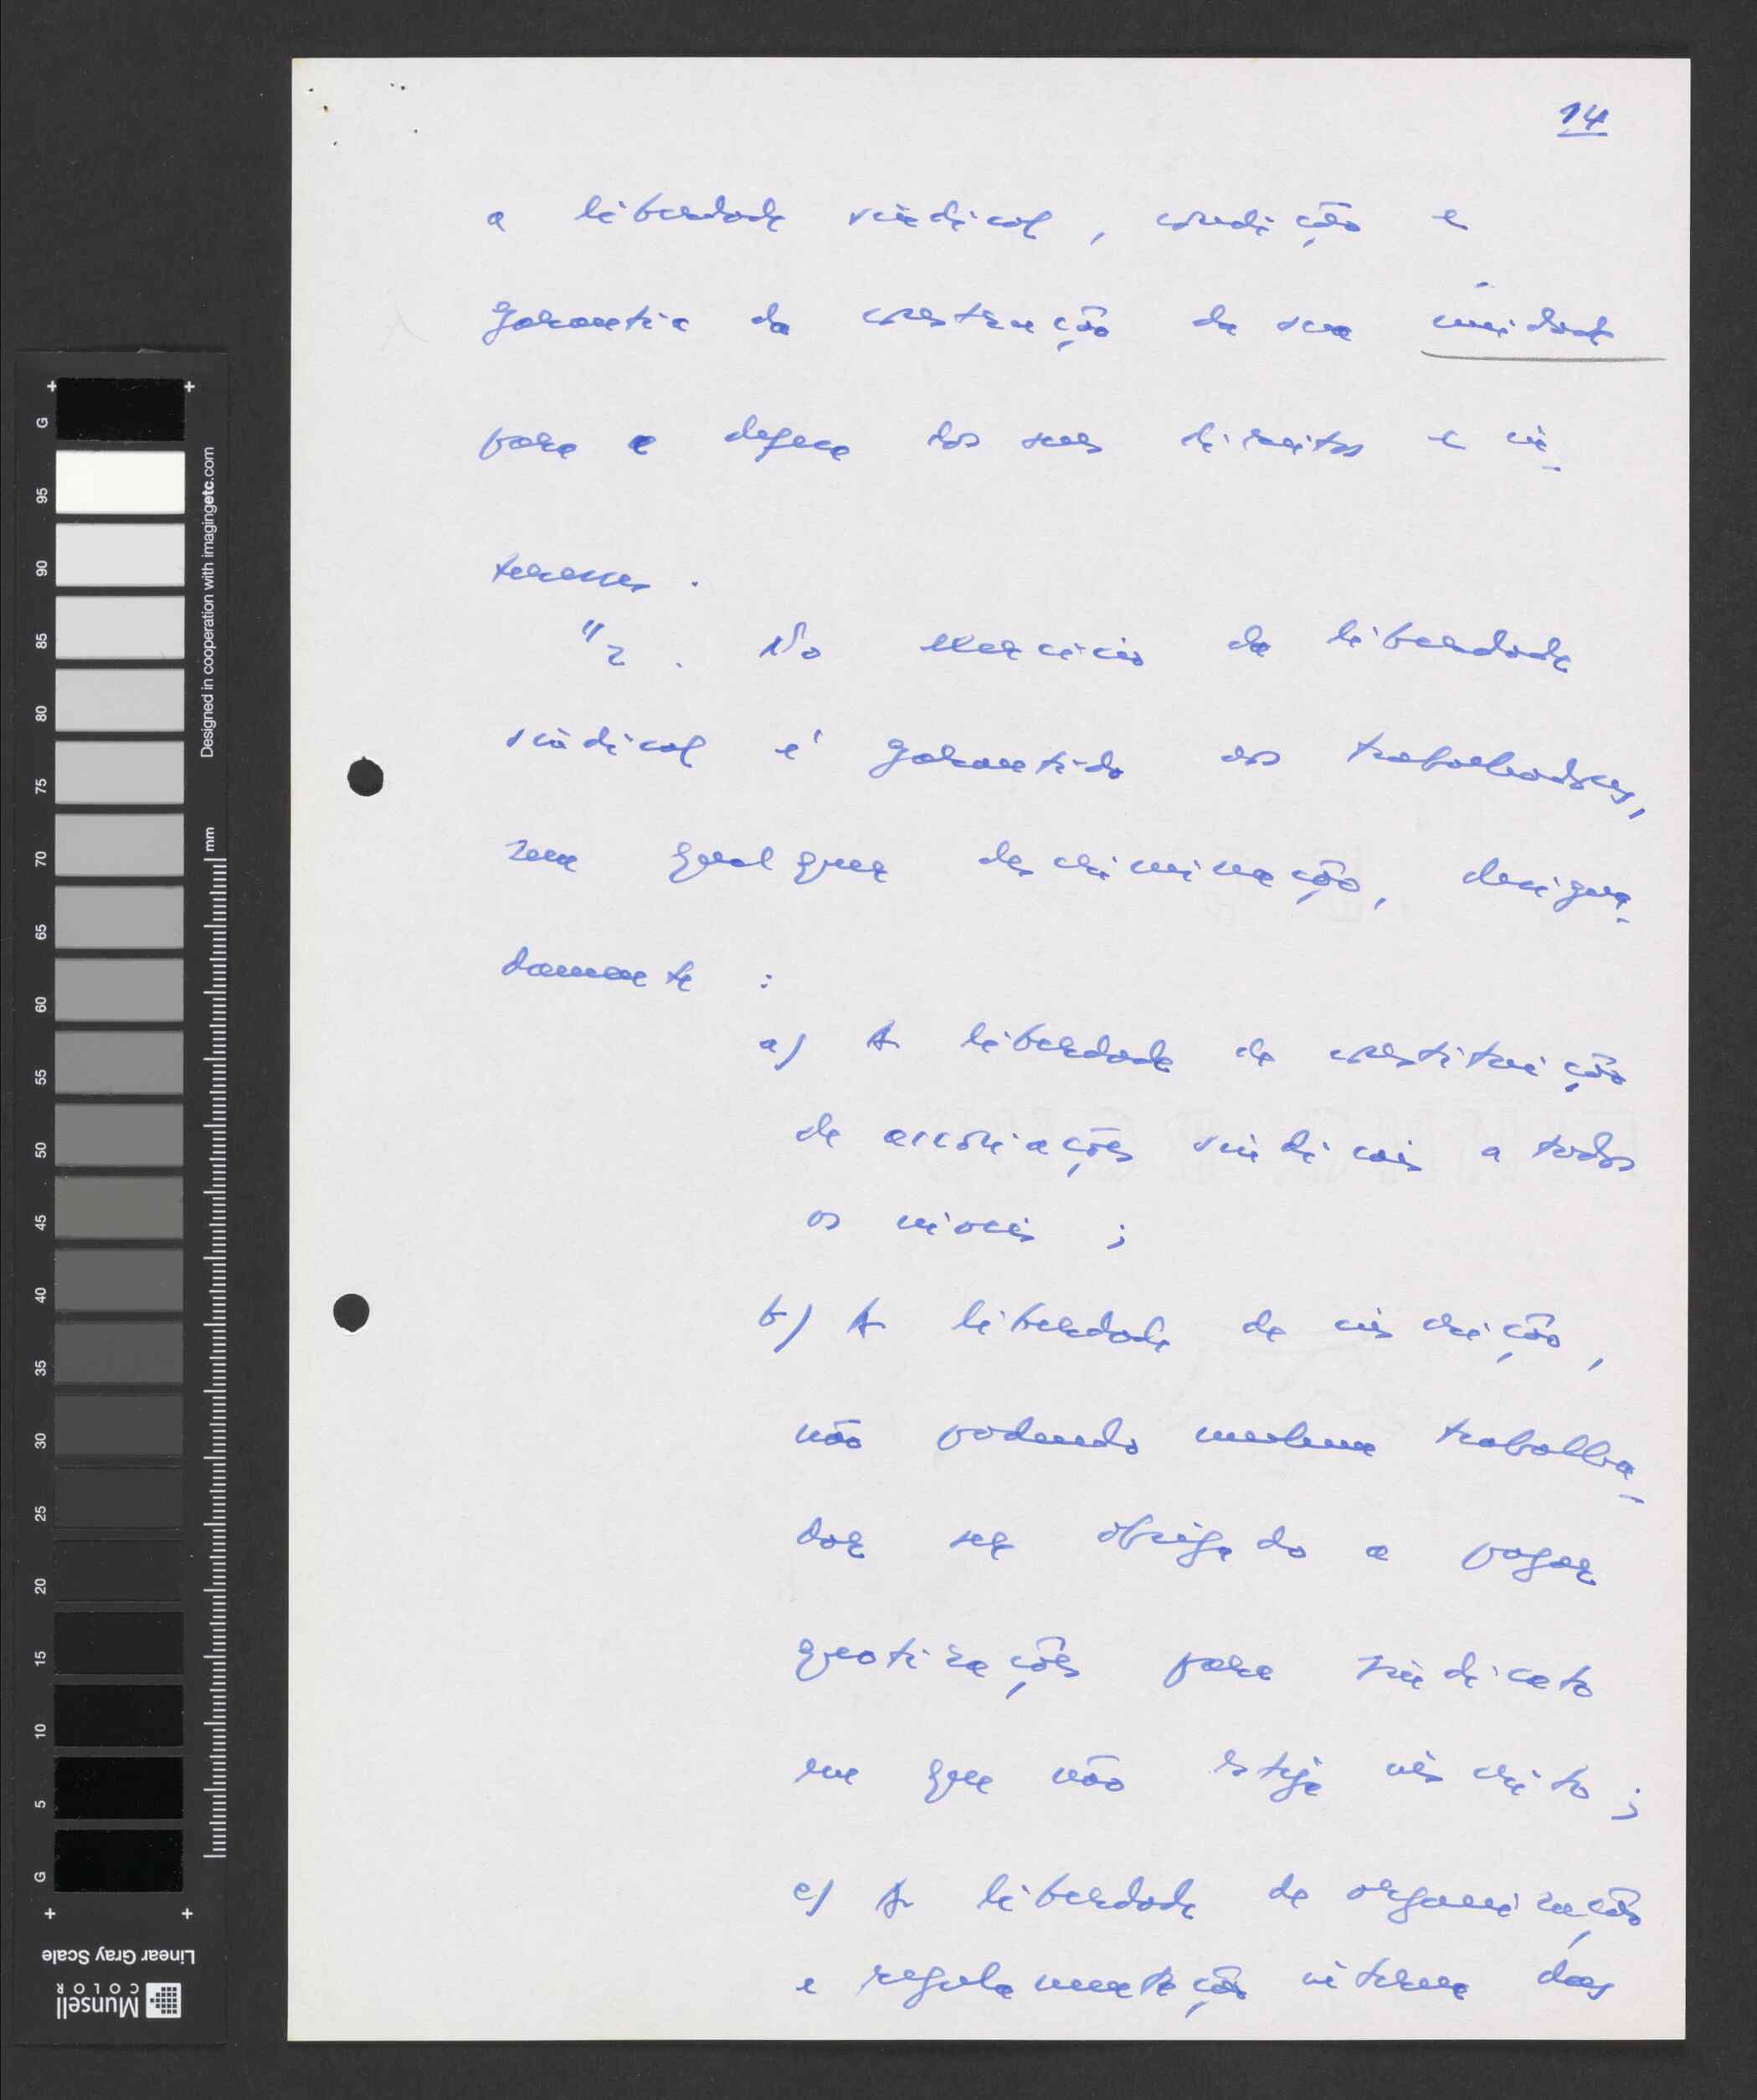 14
a liberdade sindical, condição e
garantia da construção da sua unidade
para a defesa dos seus direitos e in-
teresses.
"2. No exercício da liberdade
sindical é garantido aos trabalhadores,
sem qualquer descriminação, designa-
damente:
a) A liberdade de constituição
de associações sindicais a todos
os níveis;
b) A liberdade de inscrição,
não podendo nenhum trabalha-
dor ser obrigado a pagar
quotizações para sindicato
em que não esteja inscrito;
c) A liberdade de organização
e regulamentação interna das
G
95
90
85
80
75
70
65
60
55
50
45
40
35
30
25
20
15
10
5
G
mm
Designed in cooperation with imagingetc.com
Linear Gray Scale
Munsell
COLOR